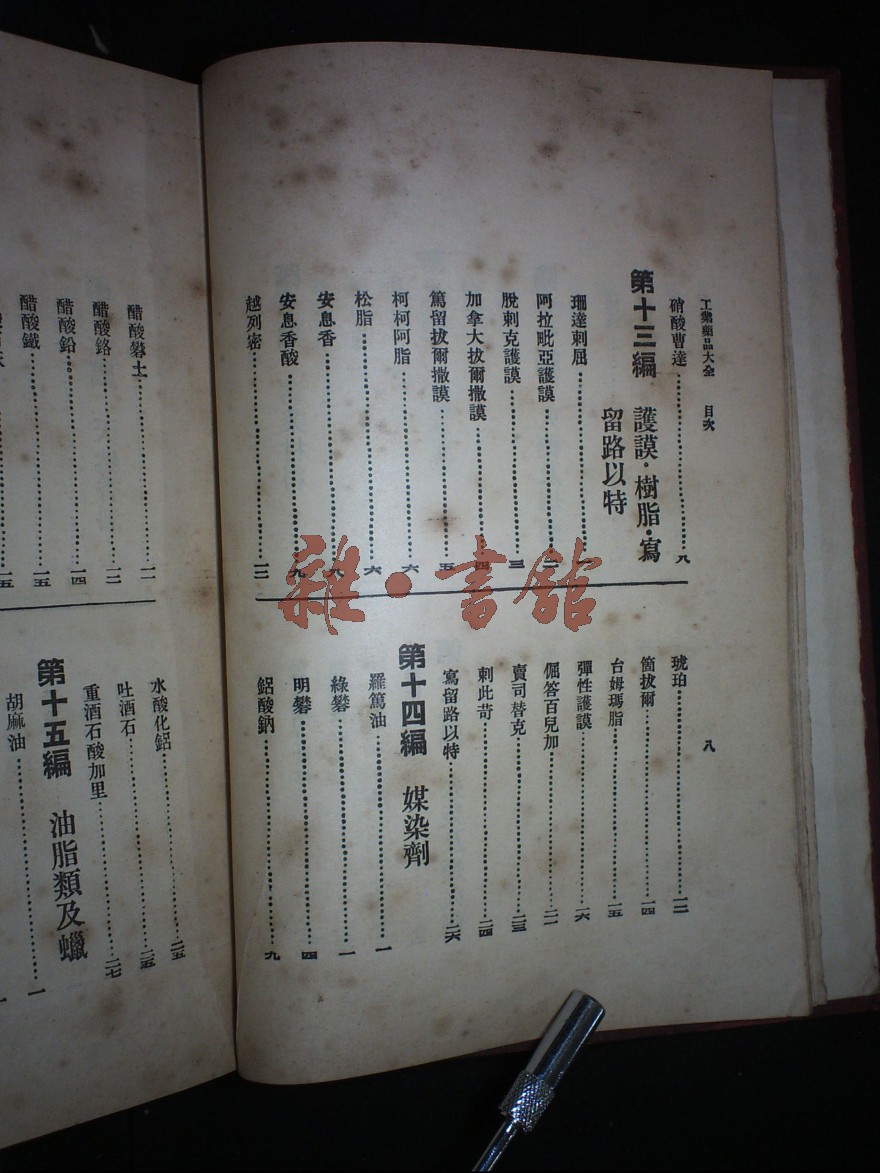 工業藥品大全 目次
硝酸曹達……九
第十三編 護謨·樹脂·寫
留路以特
珊達刺屈
阿拉毗亞護謨……二
脫刺克護謨……三
加拿大拔爾撒謨……四
篤留拔爾撒謨……五
柯柯阿脂……六
松脂……六
安息香……八
安息香酸……九
越列密……一二
八
琥珀……一二
箇拔爾……一四
台姆瑪脂……一五
彈性護謨……一六
倔答百兒加……二一
賣司替克……二三
刺此苛……二四
寫留路以特……二六
第十四編 媒染劑
羅篤油……一
綠礬……一
明礬……四
鋁酸鈉……九
醋酸礬土……一一
醋酸鉻……一二
醋酸鉛……一四
醋酸鐵……一五
一五
水酸化鋁……二五
吐酒石……二五
重酒石酸加里……二七
第十五編 油脂類及蠟
胡麻油……一
雜·書館